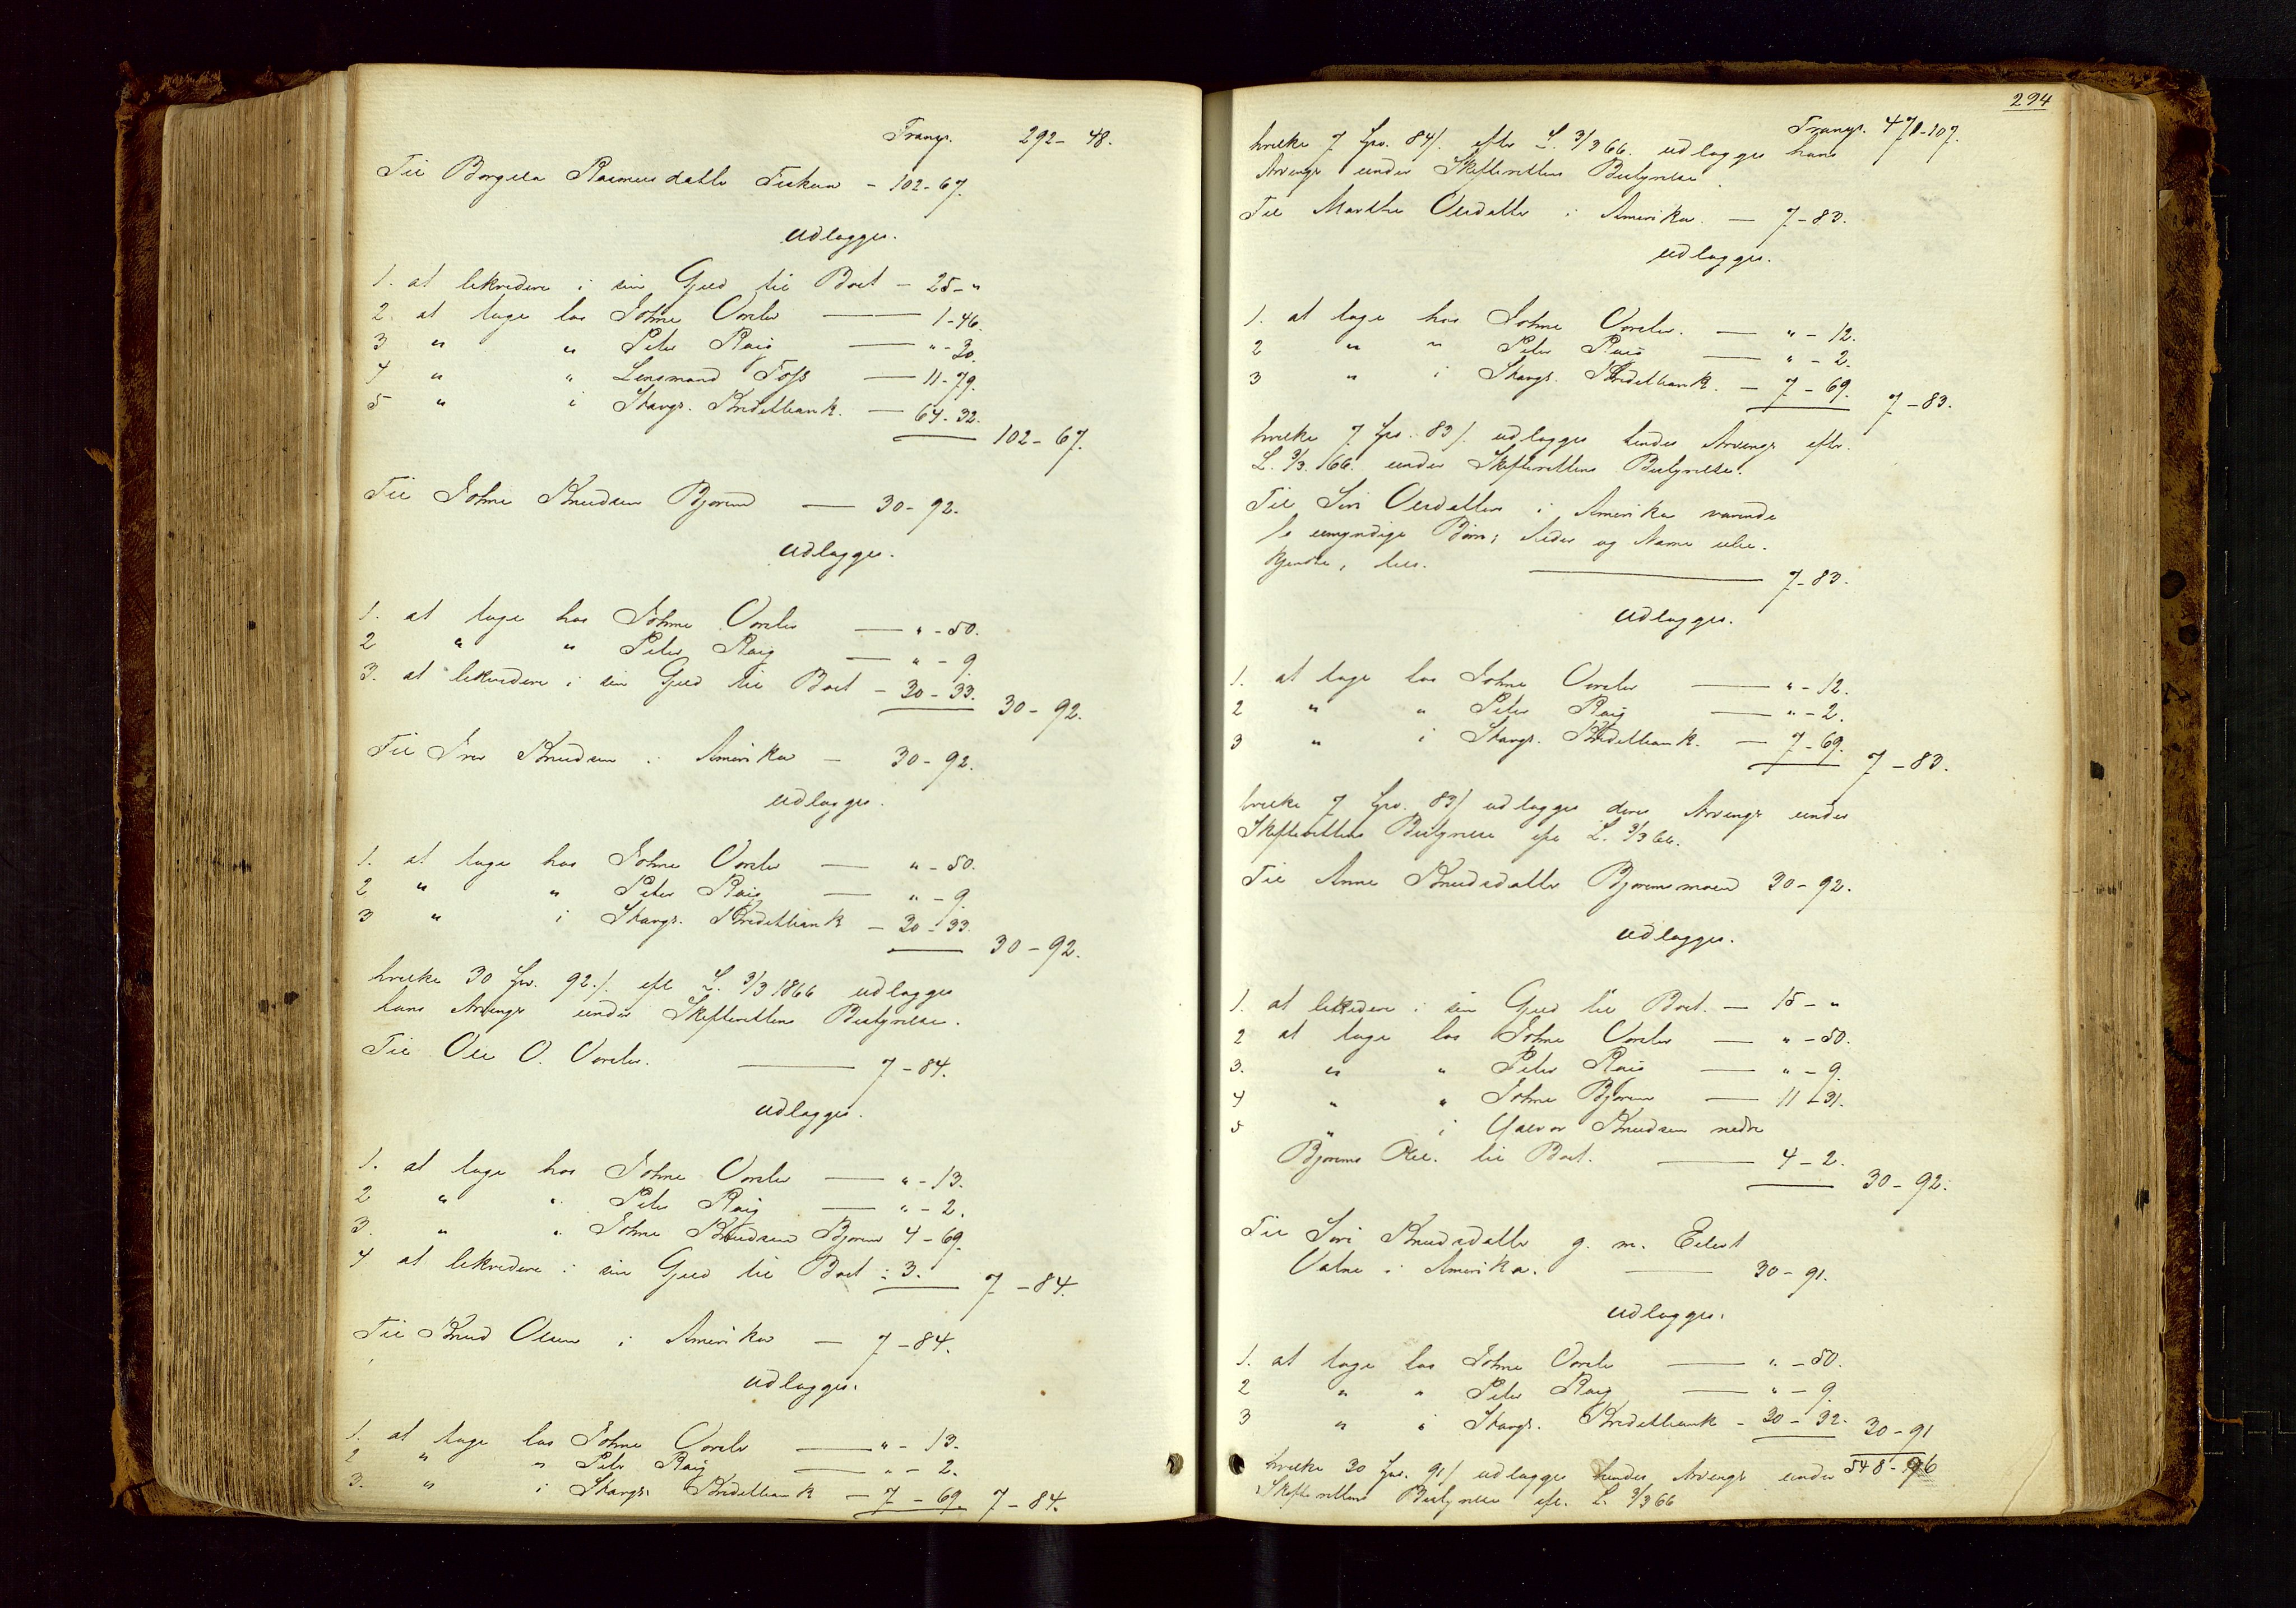 Transp. 292 - 48.
Til Borgilla Rasmusdatter Tiskun - 102 - 67.
udlægges.
1. at likvidere i sin Gjeld til Boet - 25 - "
2. at tage hos Johne Vareler — 1 - 46.
3 " " Peter Raig — " - 30.
4 " " Lensmand Foss — 11 - 79.
5 " i Stavgr. Kreditbank. — 64 - 32.
102 - 67.
Til Johne Knudsen Bjørem — 30 - 92.
udlægges.
1. at tage hos Johne — " - 50.
2 " " Peter Raig — " - 9.
3. at likvidere i sin Gjeld til Boet - 30 - 33.
30 - 92.
Til Iver Knudsen i Amerika — 30 - 92.
udlægges.
1. at tage hos Johne — " - 50.
2 " " Peter Raig — " - 9.
3 " i Stavgr. Kreditbank — 30 - 33.
30 - 92.
hvilke 30 Spd. 92 /. eft. L. 3/3 1866 udlægges
hans Arvinger under Skifterettens Bestyrelse.
Til Ole O. — 7 - 84.
udlægges.
1. at tage hos Johne — " - 13.
2 " " Peter Raig — " - 2.
3. " " Johne Knudsen Bjørem 4 - 69.
4 at likvidere i sin Gjeld til Boet : 3.
7 - 84.
Til Knud Olsen i Amerika — 7 - 84.
udlægges.
1. at tage hos Johne — " - 13.
2 " " Peter Raig — " - 2.
3. " i Stavgr. Kreditbank — 7 - 69. 7 - 84.
294
Transp. 471 - 107.
hvilke 7 Spd. 84 /. efter L. 3/3 66. udlægges hans
Arvinger under Skifterettens Bestyrelse.
Til Marthe Olsdatter i Amerika. — 7 - 83.
udlægges.
1. at tage hos Johne — " - 12.
2 " " Peter Raig — " - 2.
3 " i Stavgr. Kreditbank. — 7 - 69.
7 - 83.
hvilke 7 Spd. 83 /. udlægges hendes Arvinger efter
L. 3/3. 66. under Skifterettens Bestyrelse.
Til Siri Olsdatters i Amerika værende
umyndige Børn; Alder og Navne ube-
kjendte, — 7 - 83.
udlægges.
1. at tage hos Johne — " - 12.
2 " " Peter Raig — " - 2.
3 " i Stavgr. Kreditbank. — 7 - 69.
7 - 83.
hvilke 7 Spd. 83 /. udlægges deres Arvinger under
Skifterettens Bestyrelse efter L. 3/3 66.
Til Anne Knudsdatter Bjøremsmoen 30 - 92.
udlægges.
1. at likvidere i sin Gjeld til Boet. — 15 - "
2 at tage hos Johne — " - 50.
3. " " Peter Raig — " - 9.
4 " " Johne Bjørem — 11 - 31.
5 " i Halvor Knudsen nedre
Bjørems til Boet. — 4 - 2.
30 - 92.
Til Siri Knudsdatter g. m. Eilert
Vatne i Amerika. — 30 - 91.
udlægges.
1. at tage hos Johne — " - 50.
2 " " Peter Raig — " - 9.
3 " i Stavgr. Kreditbank - 30 - 32. 30 - 91
548 - 96
hvilke 30 Spd. 91 /. udlægges hendes Arvinger under
Skifterettens Bestyrelse eft. L. 3/3 66